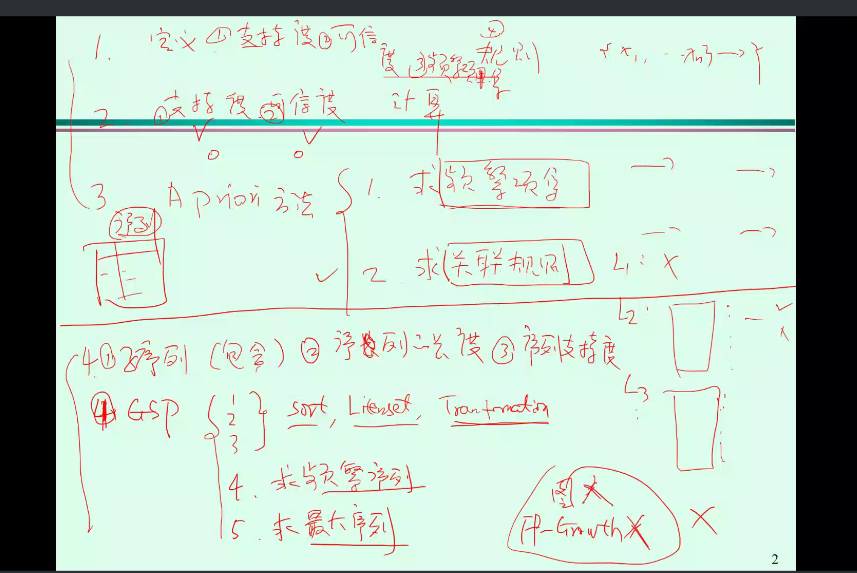 1. 定义 ①支持度②可信度 ③频繁项集 ④规则 {x1, ... xn} → y
2 ①支持度 ②可信度 计算
3 Apriori 方法 { 1. 求频繁项集
序列
2 求关联规则 L1: X
L2:
4 ①子序列 (包含) ② 序列长度 ③ 序列支持度
L3
④ GSP { 1 2 3 } sort, Litemset, Transformation
4. 求频繁序列
5. 求最大序列
图
FP-Growth X
2